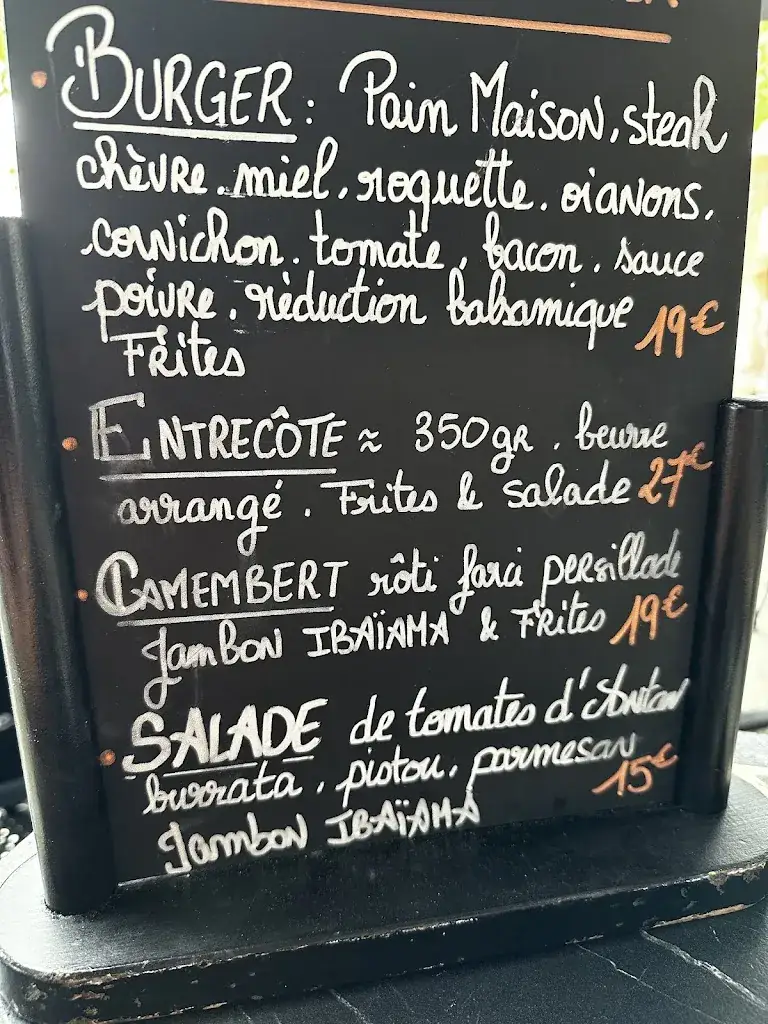 BURGER: Pain Maison, steak
chèvre. miel, roquette. oianons,
cornichon. tomate, bacon. sauce
poivre. réduction balsamique 19€
Frites
ENTRECÔTE ≈ 350gr. beurre
arrangé. Frites & salade 27€
CAMEMBERT rôti farci persillade
Jambon IBAÏAMA & Frites 19€
SALADE de tomates d'Antan
burrata, pistou, parmesan
Jambon IBAÏAMA 15€